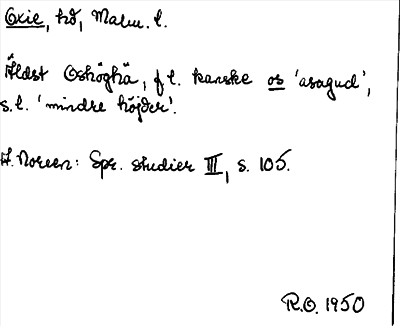 Oxie, hd, Malm. l.
Äldst Oshögha, f. l. kanske os 'asagud',
s. l. 'mindre höjder'.
A. Noreen: Spr. studier III, s. 105.
R.O. 1950